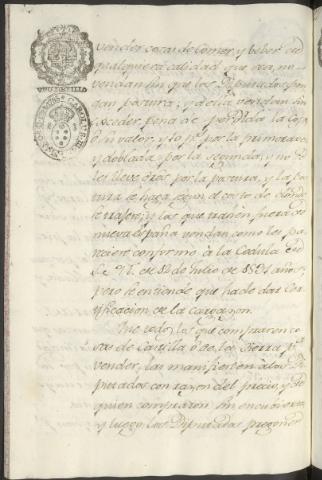 UN QUARTILLO
vender cosas de Comer, y beber de
qualquiera calidad que sea, no
vendan sin que los Diputados pon
dan postura; y de ella vendan sin
exceder pena de perdida la Cosa
ò su valor, y lo p.r por la primera vez
y doblada por la segunda, y no
les lleve por la postura, y la
tura se haga segun el costo de donde
se trajere; y las que trahen fuera de
nueva españa vendan como les pa
reciere conforme à la Cedula
de 12 de Julio de años,
pero se entiende que ha de dar Cer
tificacion de la cargazon.
Que todos los que compraren co
sas de Castilla ò de la tierra p.a
vender, las manifiesten à los Di
putados con razon del precio, y de
quien compraron sin encubierta,
y luego los Diputados pregonen